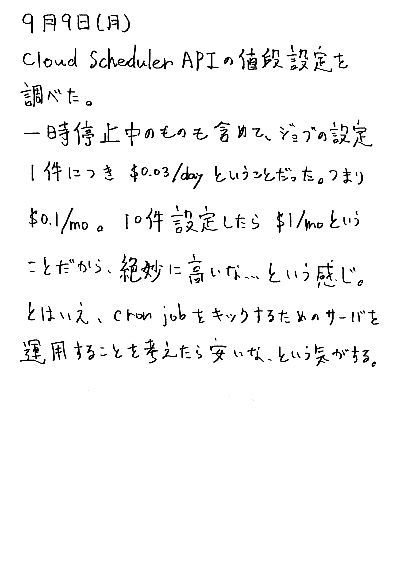 9月9日(月)
Cloud Scheduler APIの値段設定を
調べた。
一時停止中のものも含めて、ジョブの設定
1件につき $0.03/day ということだった。つまり
$0.1/mo。10件設定したら $1/moという
ことだから、絶妙に高いな…という感じ。
とはいえ、cron jobをキックするためのサーバを
運用することを考えたら安いな、という気がする。